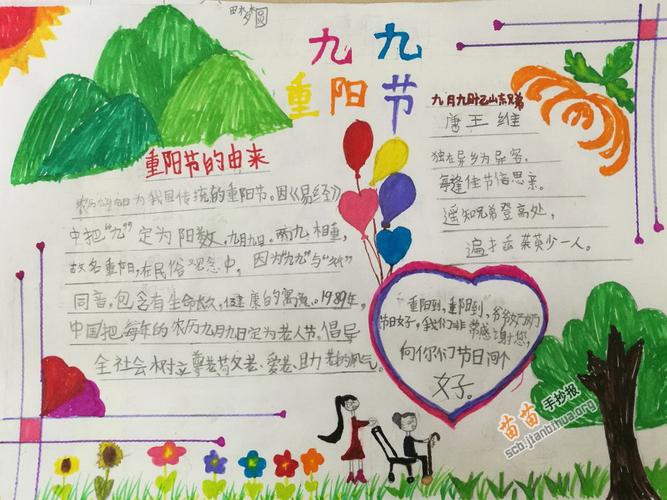 田梦圆
九九
重阳节
重阳节的由来
农历九月初九日为我国传统的重阳节。因《易经》
中把“九”定为阳数，九月九日。两九相重，
故名重阳，在民俗观念中，因为“九九”与“久久”
同音，包含有生命长久，健康的寓意。1989年，
中国把每年的农历九月九日定为老人节，倡导
全社会树立尊老、敬老、爱老、助老的风气。
九月九日忆山东兄弟
唐 王维
独在异乡为异客，
每逢佳节倍思亲。
遥知兄弟登高处，
遍插茱萸少一人。
重阳到，重阳到，爷爷奶奶
节日好，我们非常感谢您，
向你们节日问个
好。
苗苗手抄报
scb.jianbihua.org